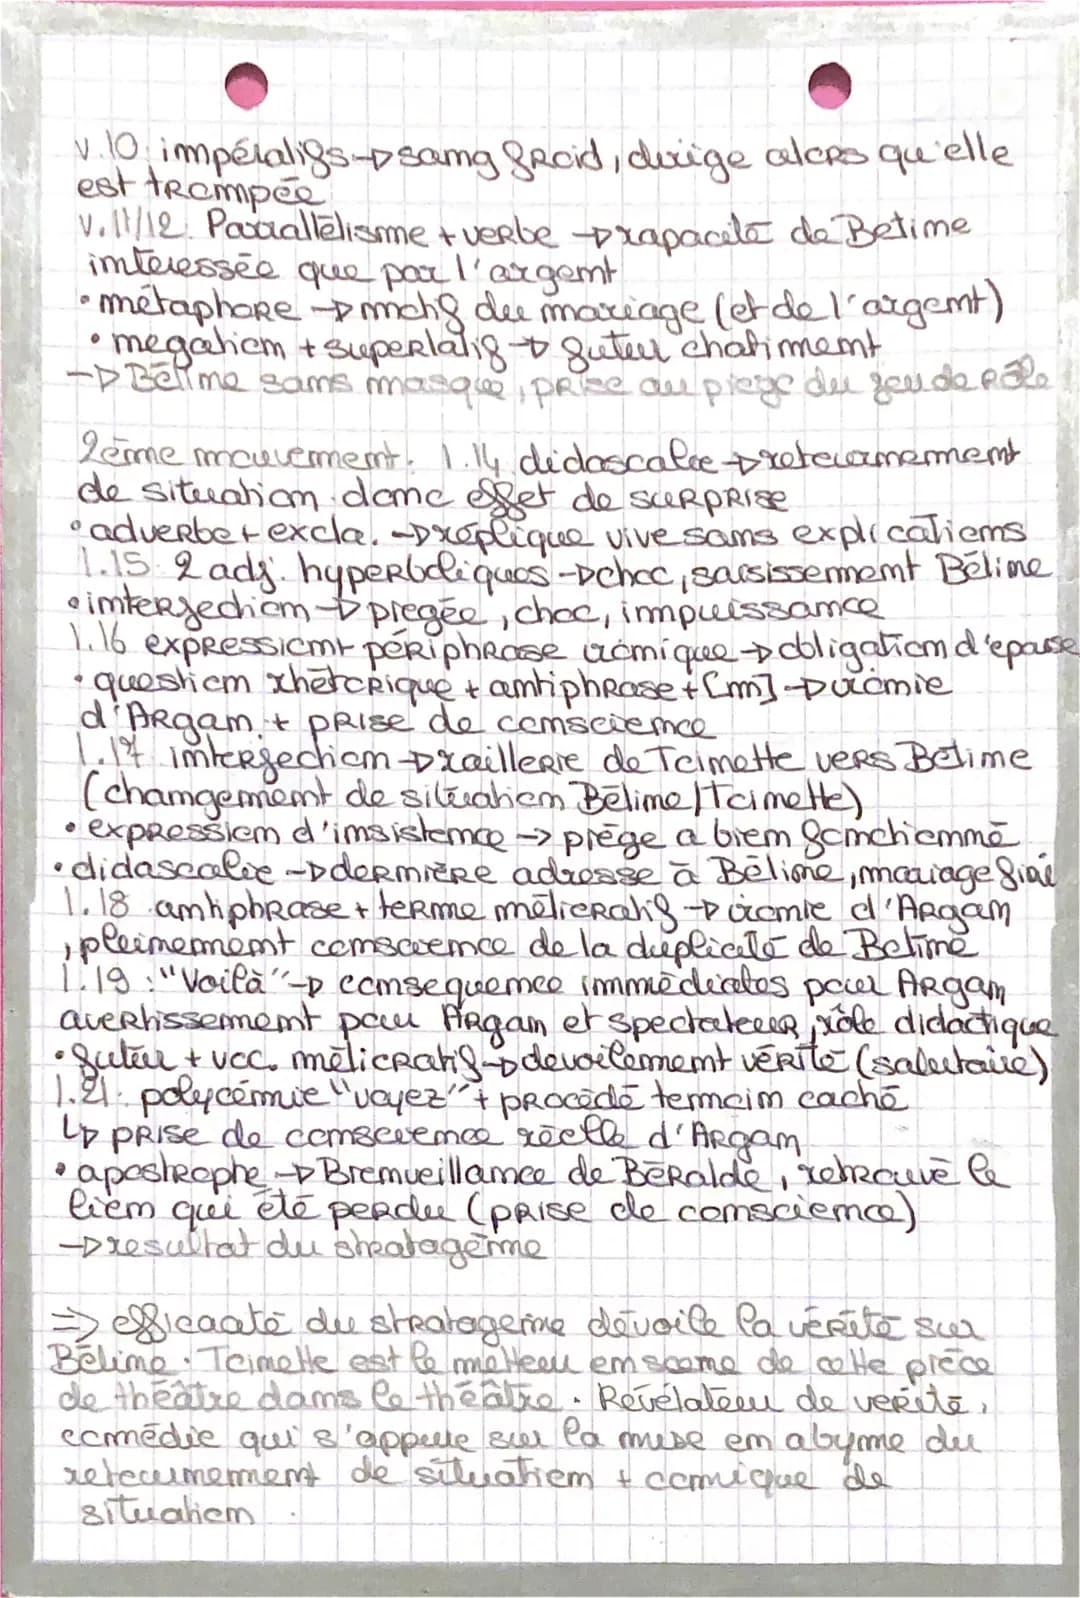 v.10: impératifs → sang froid, dirige alors qu'elle
est trompée
v.11/12: Parrallélisme + verbe → rapacité de Béline
intéressée que par l'argent
• métaphore → motif du mariage (et de l'argent)
• negation + superlatif → futur chatiment
→ Béline sans masque, prise au piege du jeu de rôle
2ème mouvement: l.14 didascalie → retournement
de situation donc effet de surprise
• adverbe + excla. → réplique vive sans explications
l.15: 2 adj. hyperboliques → choc, saisissement Béline
• interjection → piégée, choc, impuissance
l.16 expression + périphrase ironique → obligation d'epouse
• question rhétorique + antiphrase + [m] → ironie
d'Argan + prise de conscience
l.17 interjection → raillerie de Toinette vers Béline
(changement de situation Béline/Toinette)
• expression d'insistance → piège a bien fonctionné
• didascalie → dernière adresse à Béline, mariage fini
l.18 antiphrase + terme mélioratif → ironie d'Argan
, pleinement conscience de la duplicité de Béline
l.19: "Voilà" → consequence immédiates pour Argan
avertissement pour Argan et spectateur, rôle didactique
• futur + voc. mélioratif → dévoilement vérité (salutaire)
l.21: polycémie "voyez" + procédé temoin caché
↳ prise de conscience réelle d'Argan
• apostrophe → Bienveillance de Béralde, retrouvé le
lien qui été perdu (prise de conscience)
→ resultat du stratagème
⇒ efficacité du stratageme dévoile la vérité sur
Béline. Toinette est le metteur en scene de cette pièce
de théâtre dans le théâtre. Révélateur de vérité,
comédie qui s'appuie sur la mise en abyme du
retournement de situation + comique de
situation.